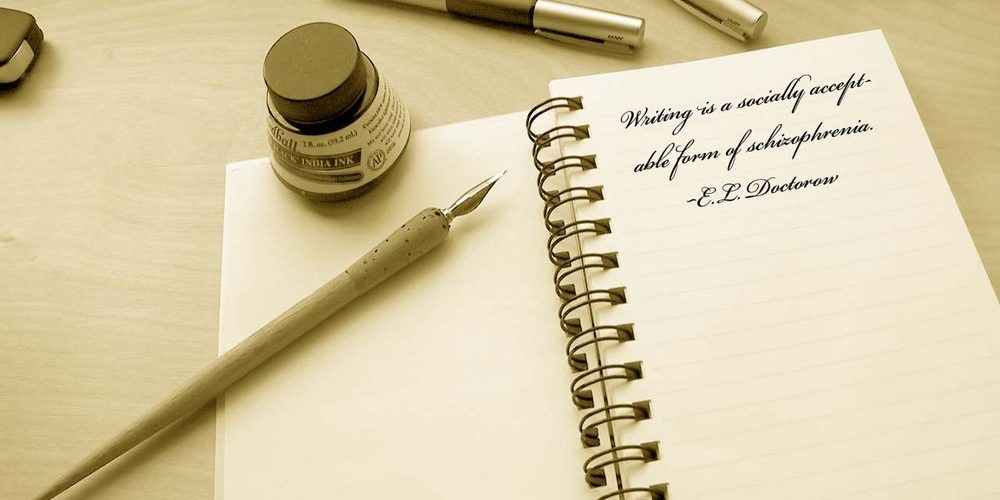 Writing is a socially accept-
able form of schizophrenia.
-E.L. Doctorow
2 fl. oz. (59.2 ml)
INDIA INK
AP